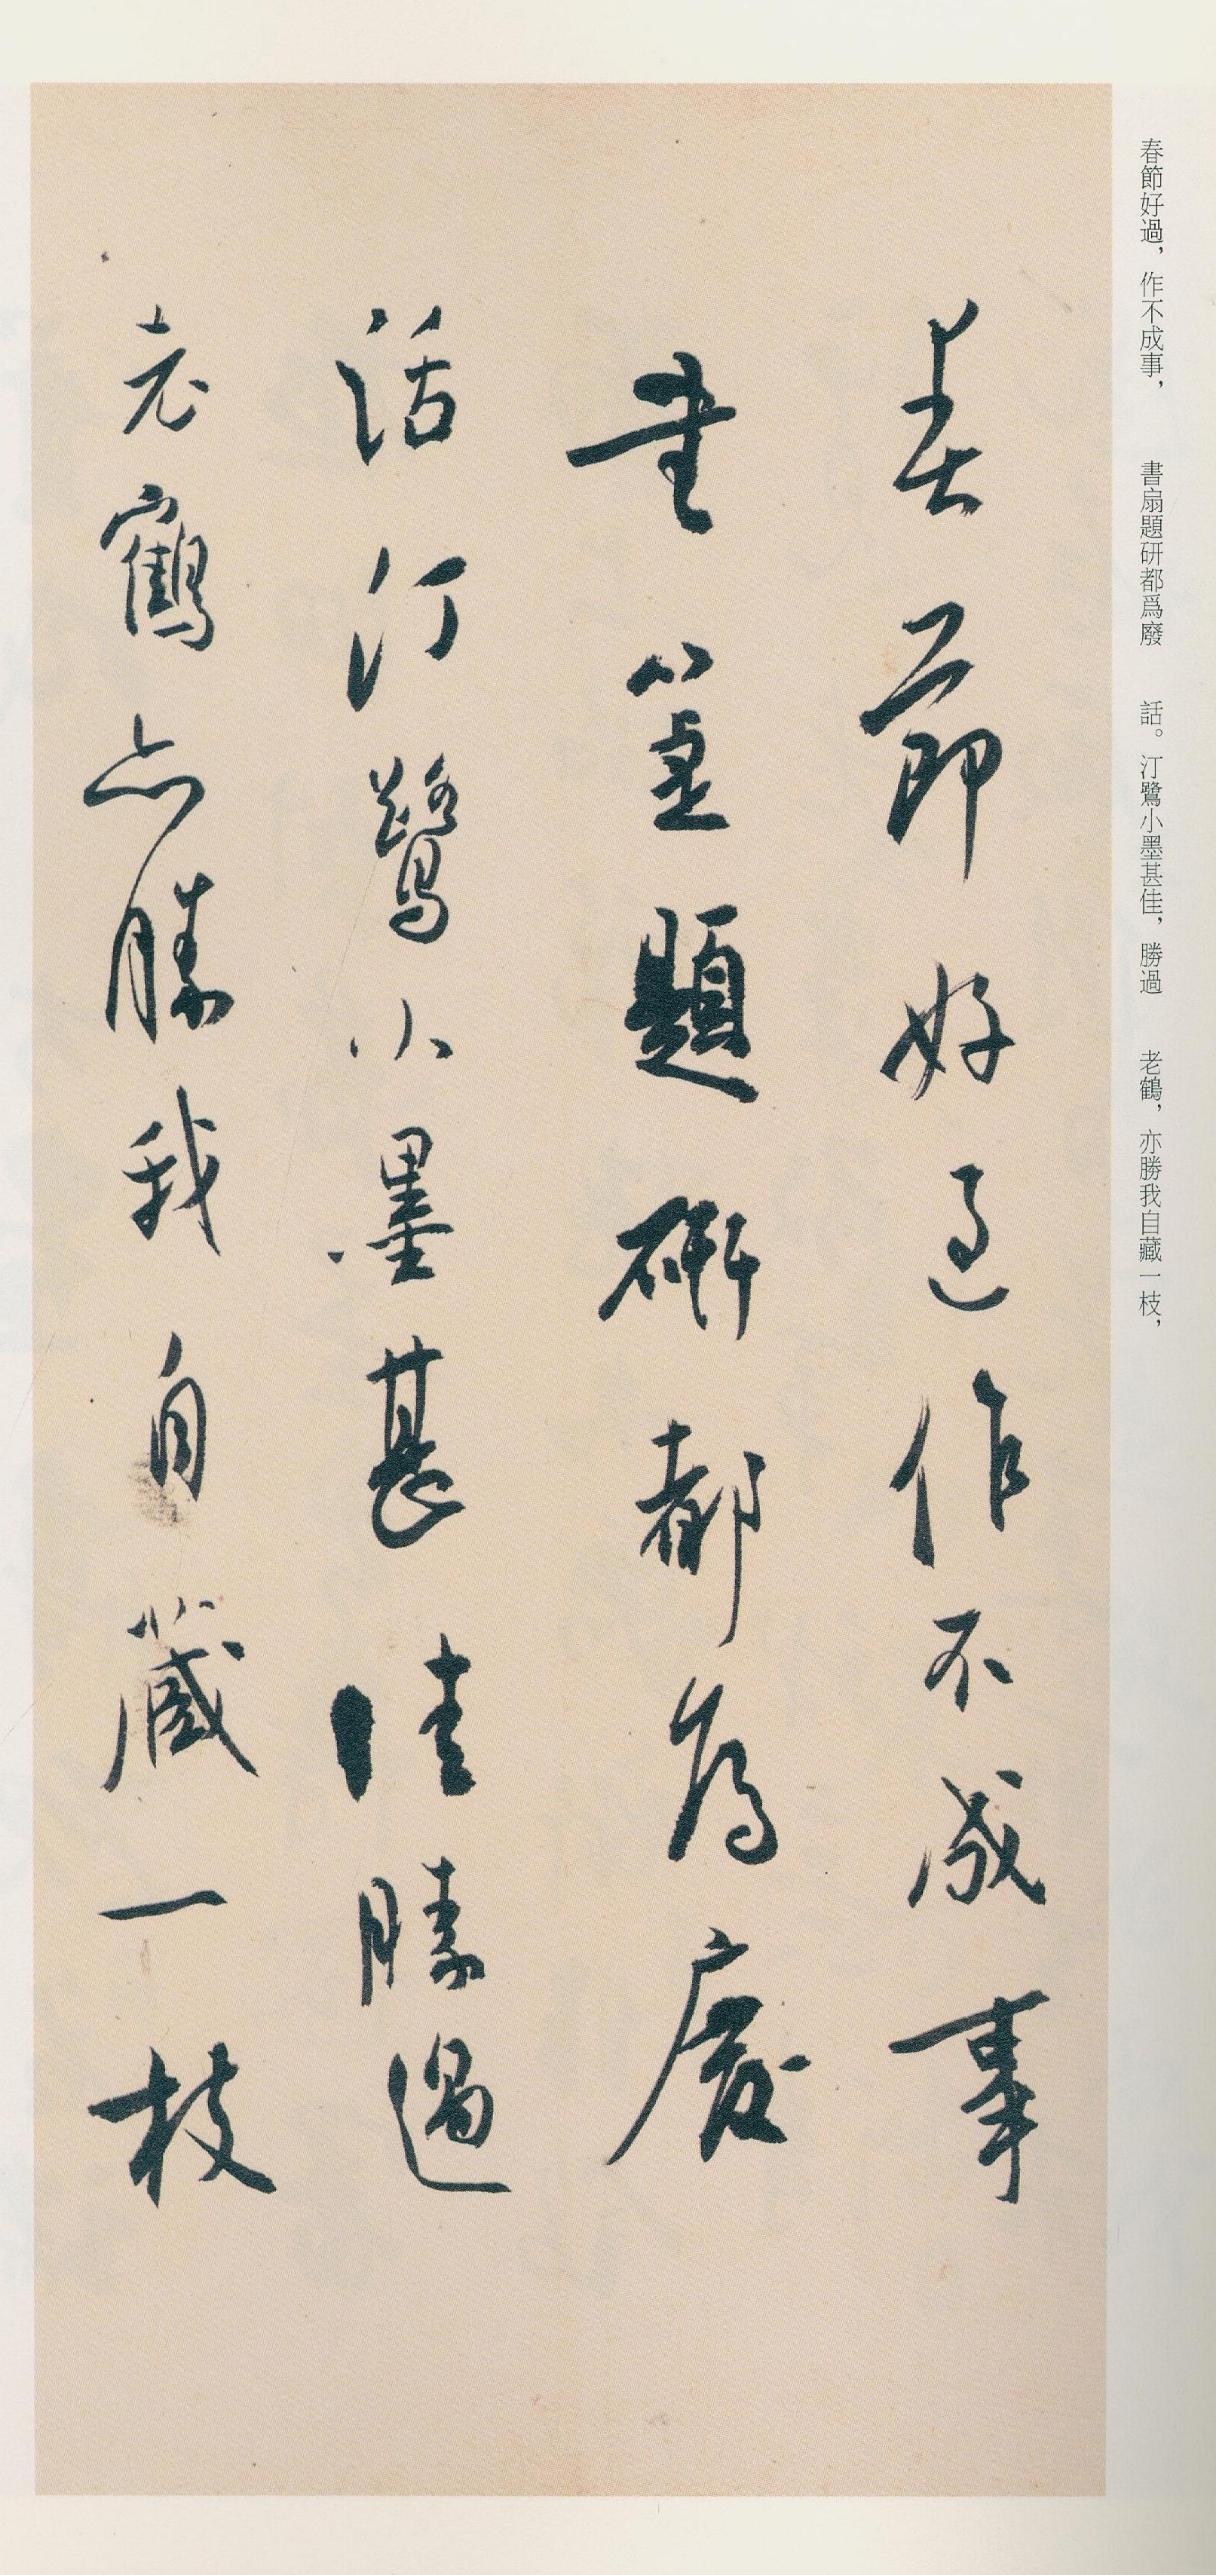 春節好過，作不成事，　書扇題研都爲廢　話。汀鷺小墨甚佳，勝過　老鶴，亦勝我自藏一枝，
春節好過作不成事
書箑題研都為廢
話汀鷺小墨甚佳勝過
老鶴亦勝我自藏一枝